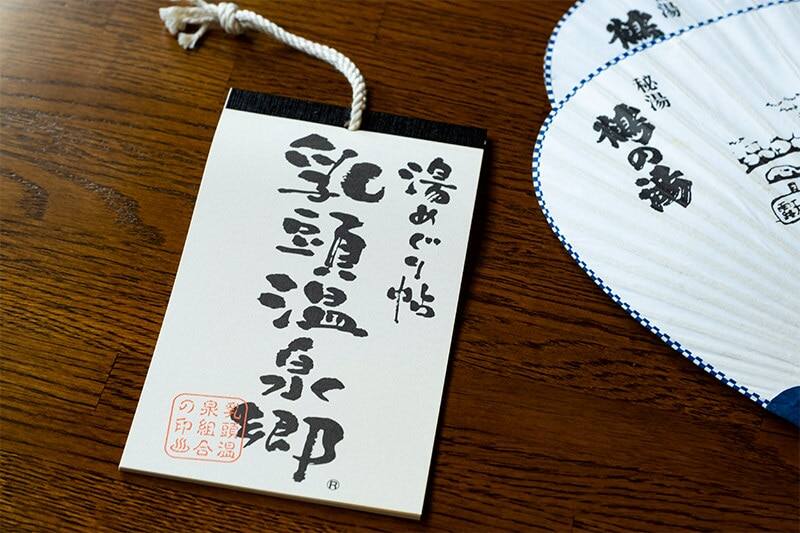 湯めぐり帖
乳頭温泉郷
®
乳頭温
泉組合
の印♨
秘湯
鶴の湯
湯
鶴